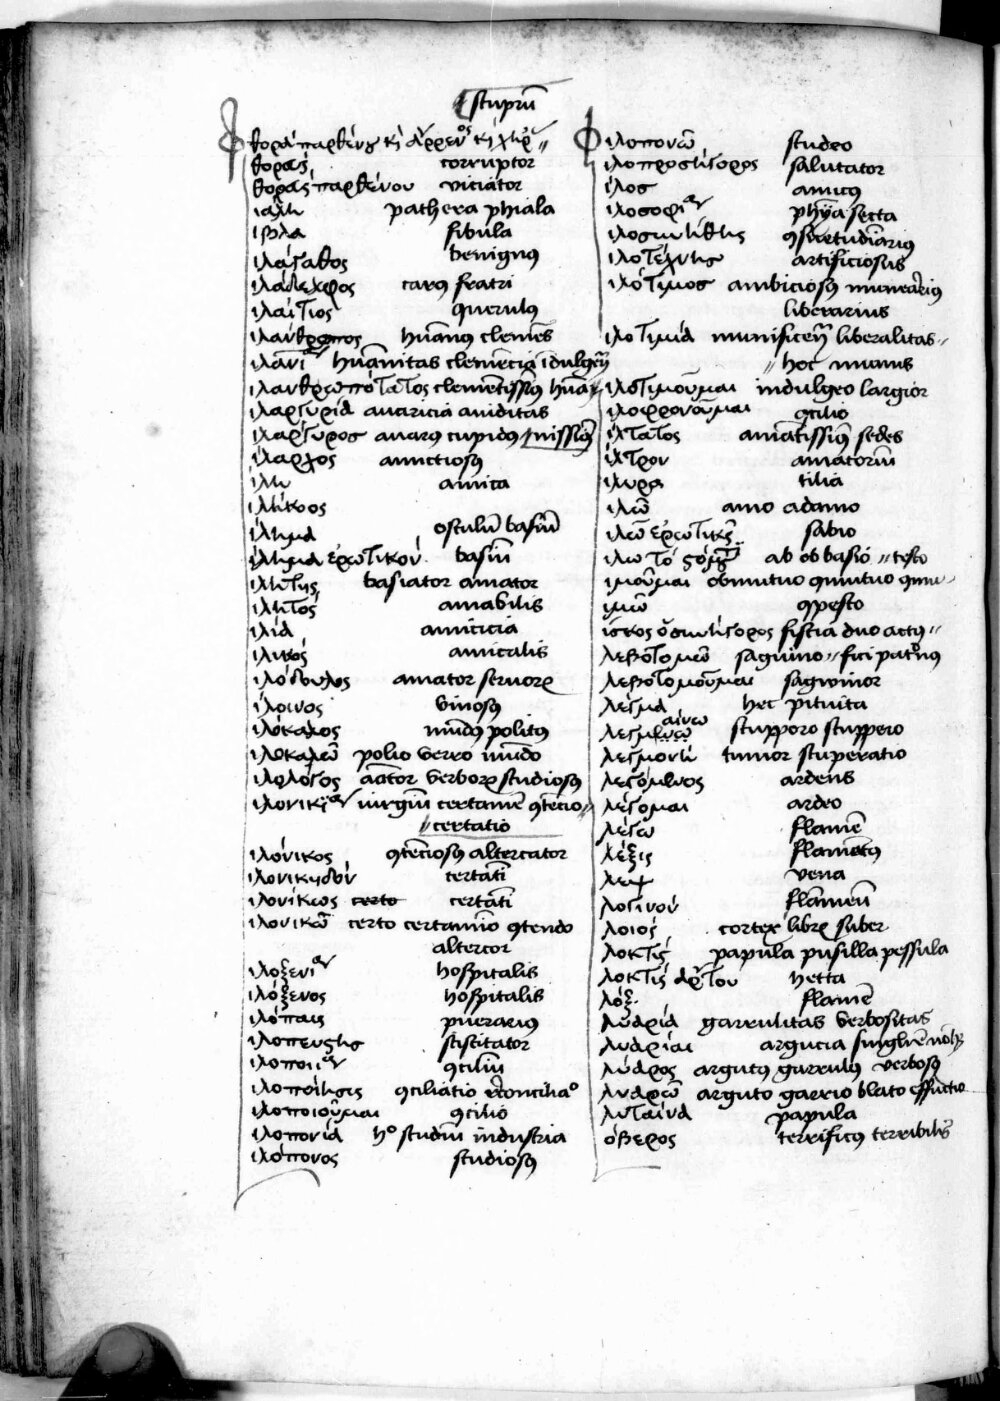 stuprū
Φθορά παρθένȣ κὶ ἄρρεν
θοραῖς corruptor
θοραῖς παρθένου viciator
ιαλη pathera phiala
ιβλα fibula
ιλάγαθος benignꝰ
ιλάδελφος carꝰ fratri
ιλαίτιος querulꝰ
ιλάνθρωπος hūanꝰ clemēs
ιλανι hūanitas clemēcia īdulgē
ιλανθρωπότατος clemētissiꝰ hūa
ιλαργυρία auaricia auiditas
ιλαργυρος auarꝰ cupidꝰ nissiꝰ
ίλαρχος amictiosꝰ
ίλη amica
ιλήκοος
ίλημα osculū basiū
ίλημα ἐρωτικού basiū
ιλητής basiator amator
ιλητός amabilis
ιλία amicicia
ιλικός amicalis
ιλόδουλος amator seruorꝝ
ίλοινος vinosꝰ
ιλόκαλος mūdꝰ politꝰ
ιλοκαλῶ polio verro mūdo
ιλολόγος actor verborꝝ studiosꝰ
ιλονικι iurgiū certamē ꝯtēcio
certatio
ιλόνικος ꝯtēciosꝰ altercator
ιλονικηδόν certāti
ιλονίκως certo certāti
ιλονικῶ certo certamīo ꝯtendo
altercor
ιλοξενι hospitalis
ιλόξενος hospitalis
ιλόπαις puerarius
ιλοπευστης sciscitator
ιλοποιι ꝯciliū
ιλοποίησις ꝯciliatio rēconcilia
ιλοποιοῦμαι ꝯcilio
ιλοπονία hº studiū industria
ιλόπονος studiosꝰ
Φιλοπονῶ studeo
ιλοπροσήγορος salutator
ίλος amicꝰ
ιλοσοφι phȳa secta
ιλοσυνήθης ꝯsuetudīariꝰ
ιλοτέχνης artificiosus
ιλότιμος ambiciosꝰ munerariꝰ
liberarius
ιλοτιμία munificen liberalitas
hoc munus
ιλοτιμοῦμαι indulgeo largior
ιλοφρονοῦμαι ꝯcilio
ίλτατος amātissiꝰ sedes
ίλτρον amatoriū
ιλυρα tilia
ιλῶ amo adamo
ιλῶ ἐρωτικῶς sabio
ιλω τό ab ob basio testo
ιμοῦμαι obmutuo
ιμῶ ꝯpesto
ίσκος ὁ συνήγορος fiscia duo actꝰ
λεβοτομῶ saguino fici patrōꝰ
λεβοτομοῦμαι sagwinor
λέγμα hec pituita
λεγμαίνω stupporo stuppero
λεγμονή tumor stuperatio
λεγόμενος ardens
λέγομαι ardeo
λέγω flamē
λέξις flamētꝰ
λεψ vena
λογινού flāmeū
λοιός cortex librꝝ suber
λοκτίς papula pusilla pessula
λοκτίς ἄρτου hetta
λόξ flamē
λυαρία garrulitas verbositas
λυαρίαι argucia
λύαρος argutꝰ garrulꝰ verbosꝰ
λυαρῶ arguto garrio blato effutio
λυταίνα papula
όβερος terrificꝰ terribilis